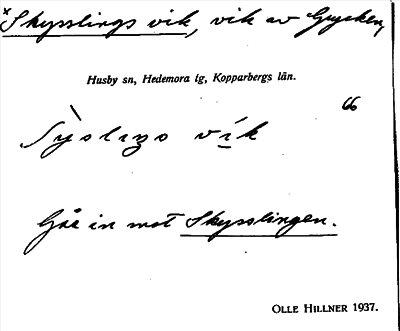 *Skysslings vik, vik av Grycken,
Husby sn, Hedemora tg, Kopparbergs län.
vík
Går in mot Skysslingen.
OLLE HILLNER 1937.